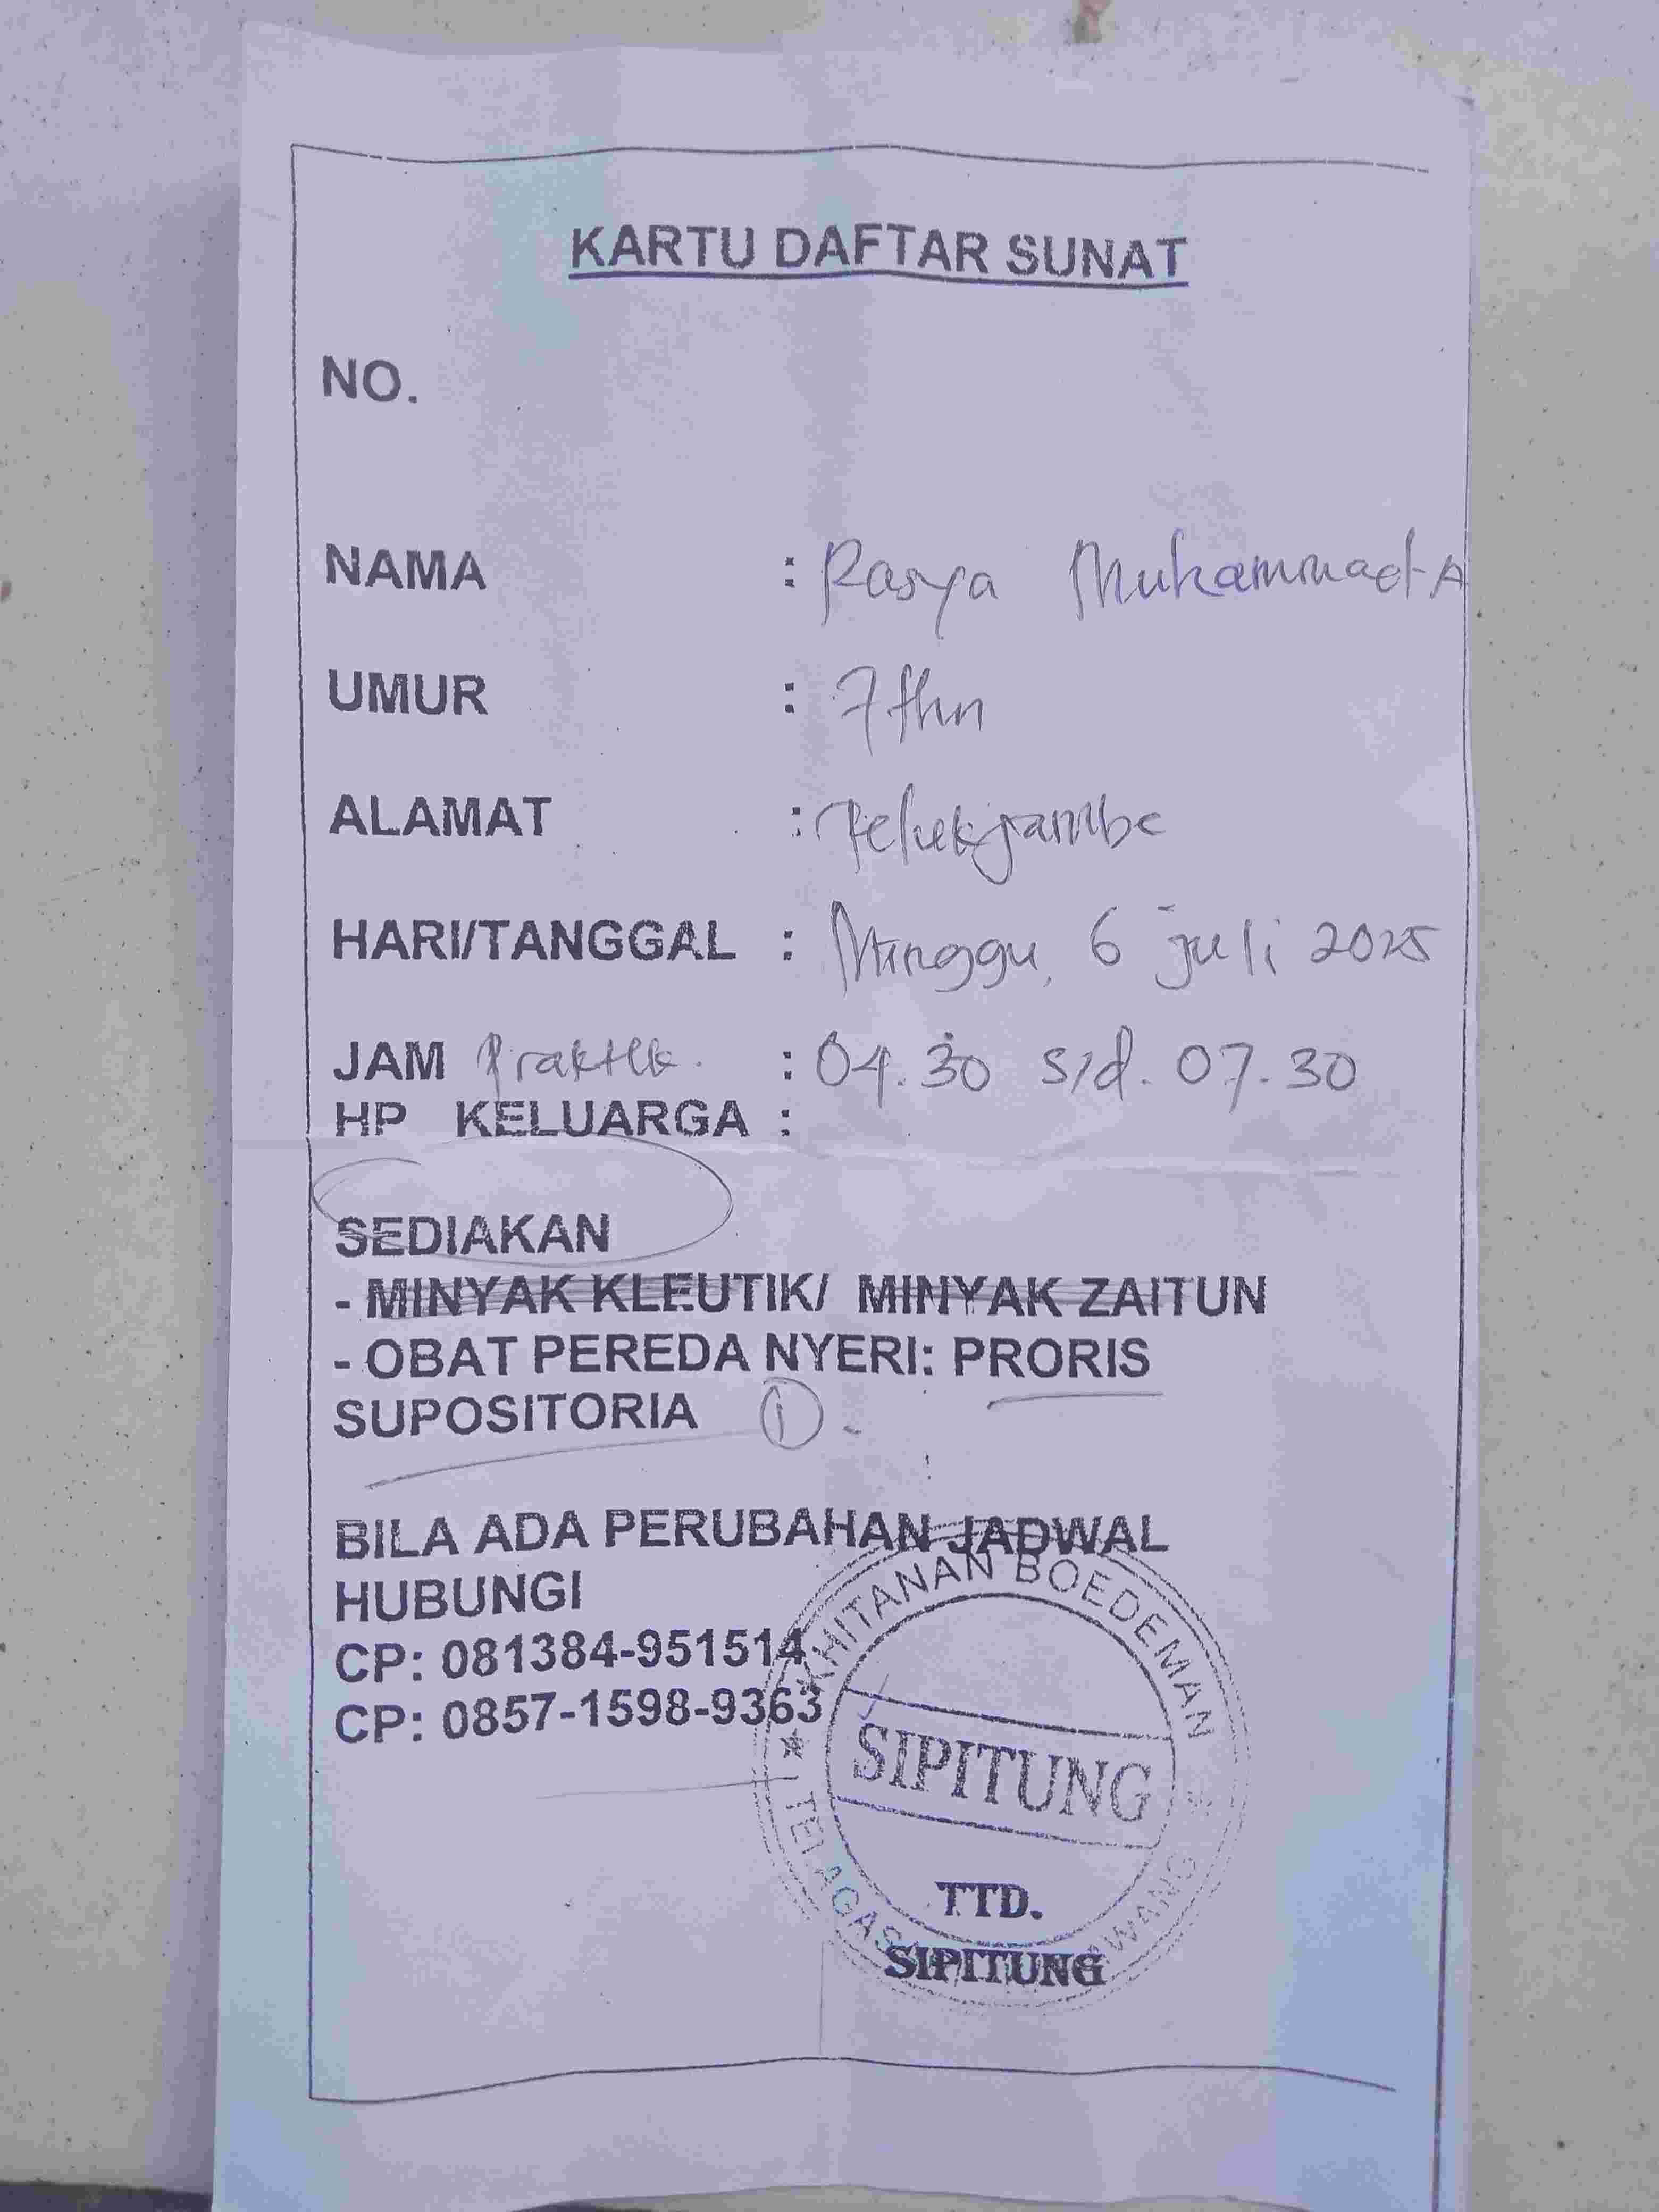 KARTU DAFTAR SUNAT
NO.
NAMA : Rasya Muhammad A
UMUR : 7 thn
ALAMAT : Telukjambe
HARI/TANGGAL : Minggu, 6 juli 2025
JAM Praktek. : 04.30 s/d. 07.30
HP KELUARGA :
SEDIAKAN
- MINYAK KLEUTIK/ MINYAK ZAITUN
- OBAT PEREDA NYERI: PRORIS
SUPOSITORIA 1
BILA ADA PERUBAHAN JADWAL
HUBUNGI
CP: 081384-951514
CP: 0857-1598-9363
KHITANAN BOEDEMAN
SIPITUNG
TTD.
SIPITUNG